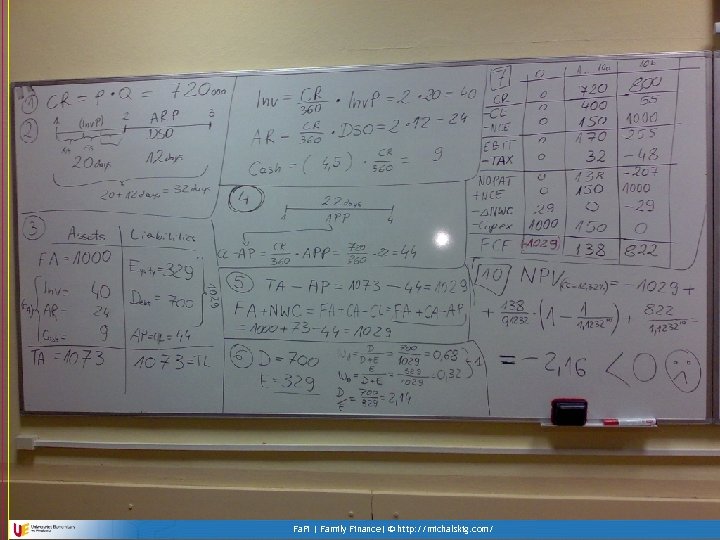 1 CR = P • Q = 720 000
2 1 (InvP) 2 ARP 3
DSO
20 days 12 days
20+12 days = 32 days
3 Assets Liabilities
FA=1000 Equity=329
Inv= 40 Debt=700
AR= 24 1029
Cash= 9 AP=CL=44
TA=1073 1073=TL
Inv = CR/360 • InvP = 2 • 20 = 40
AR = CR/360 • DSO = 2 • 12 = 24
Cash = (4,5) • CR/360 = 9
4 22 days
APP
CL=AP= CR/360 • APP = 700/360 • 22 = 44
5 TA - AP = 1073 - 44 = 1029
FA+NWC = FA+CA-CL = FA+CA-AP
= 1000+73-44 = 1029
6 D=700
E=329
D/D+E = 700/1029 = 0,68
E/D+E = 329/1029 = 0,32
D/E = 700/329 = 2,14
7 0
CR 0 720 800
-CL 0 400 55
-NCE 0 150 1000
EBIT 0 170 255
-TAX 0 32 -48
NOPAT 0 138 -207
+NCE 0 150 1000
-ΔNWC 29 0 -29
-Capex 1000 150 0
FCF -1029 138 822
10 NPV = -1029 +
+ 138/0,1232 • (1 - 1/1,1232¹⁰) + 822/1,1232¹⁰
= -2,16 < 0
UE Uniwersytet Ekonomiczny
we Wrocławiu
FaFi | Family Finance| © http://michalskig.com/